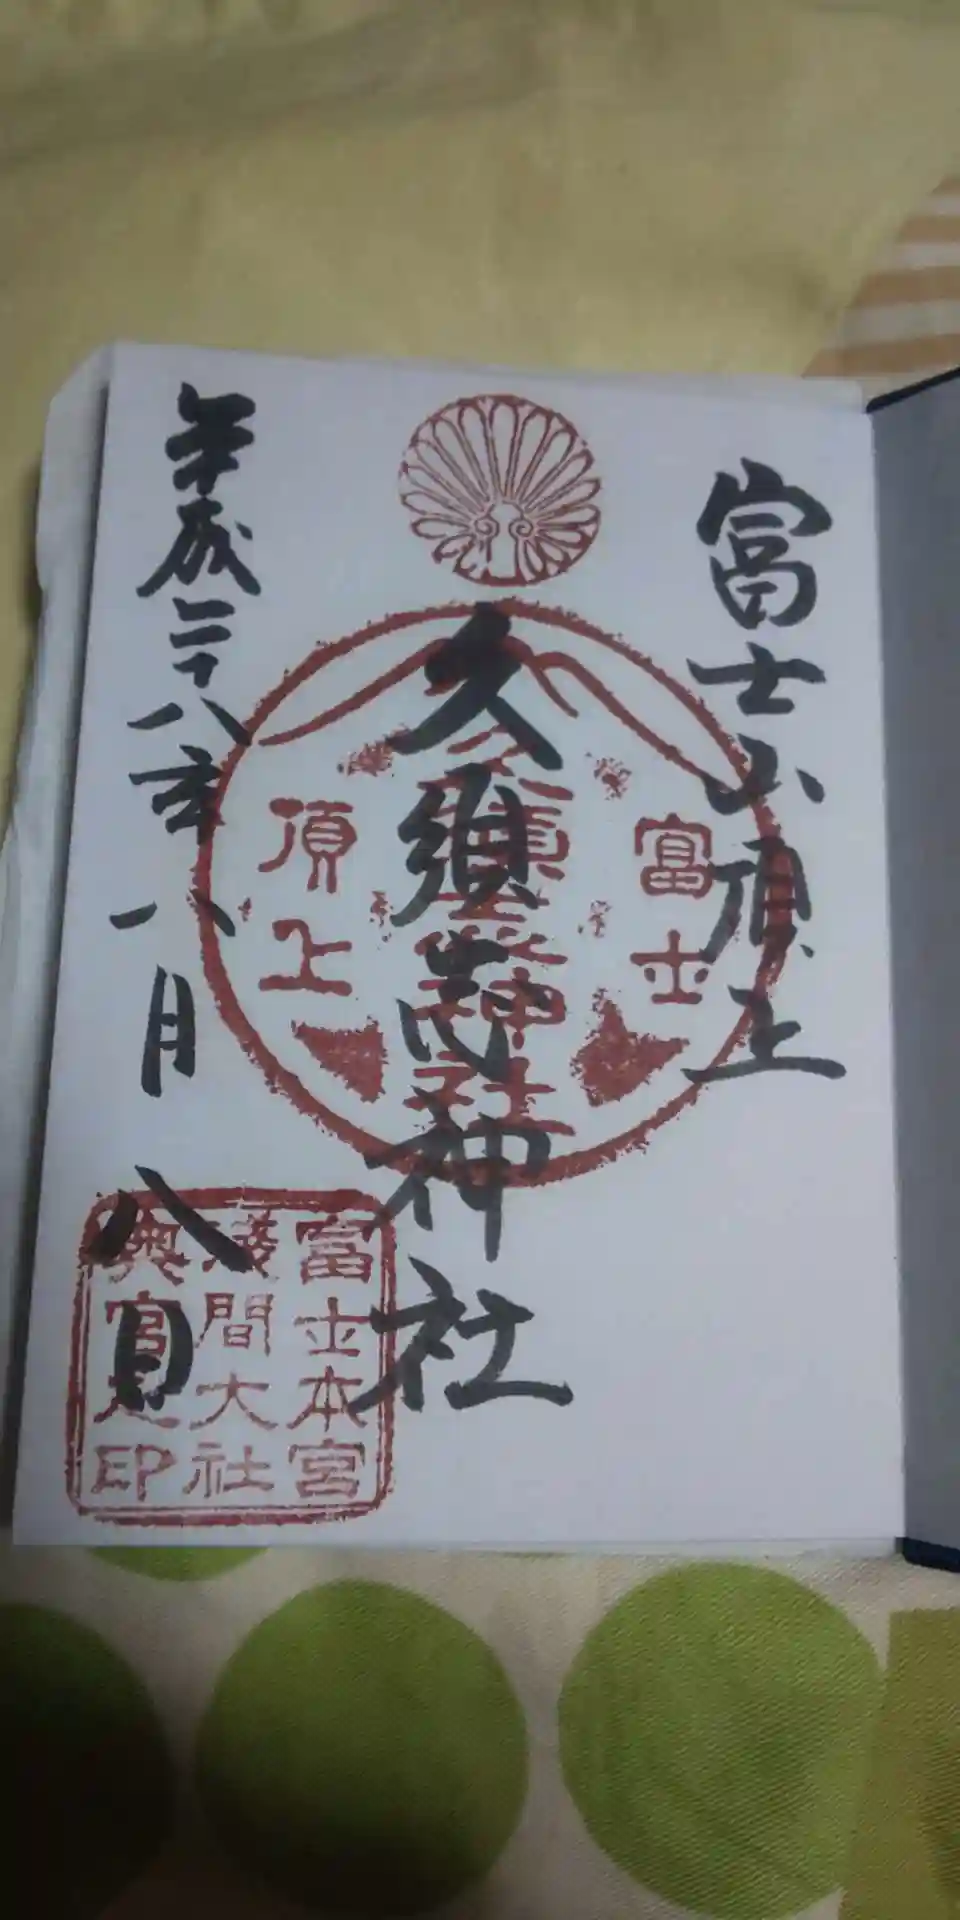 富士山頂上
久須志神社
平成二十八年八月八日
富士
頂上
富士本宮
浅間大社
奥宮之印